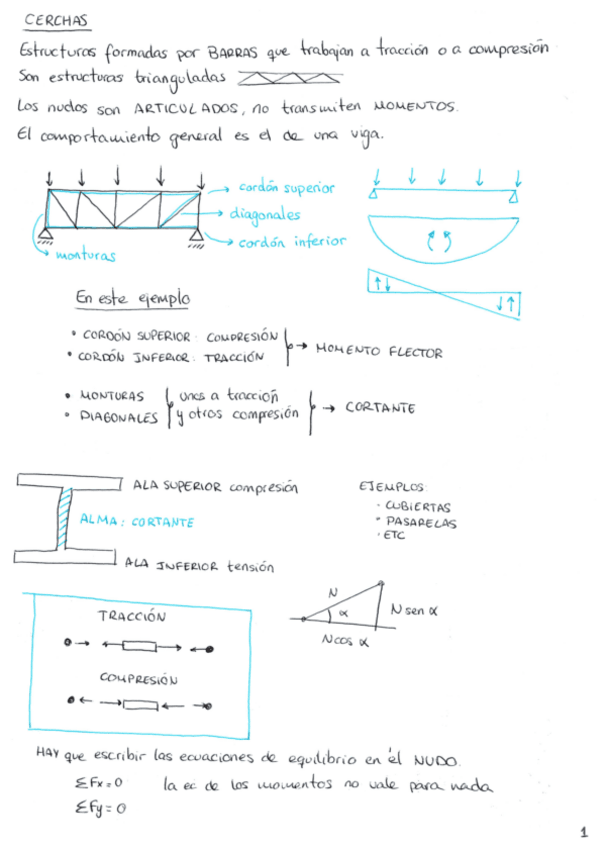 CERCHAS
Estructuras formadas por BARRAS que trabajan a tracción o a compresión
Son estructuras trianguladas
Los nudos son ARTICULADOS, no transmiten MOMENTOS.
El comportamiento general es el de una viga.
cordón superior
diagonales
cordón inferior
monturas
En este ejemplo
• CORDÓN SUPERIOR: COMPRESIÓN
• CORDÓN INFERIOR: TRACCIÓN
→ MOMENTO FLECTOR
• MONTURAS
• DIAGONALES
unos a tracción
y otros compresión
→ CORTANTE
ALA SUPERIOR compresión
ALMA: CORTANTE
ALA INFERIOR tensión
EJEMPLOS:
· CUBIERTAS
· PASARELAS
· ETC
TRACCIÓN
COMPRESIÓN
N
α
N sen α
N cos α
HAY que escribir las ecuaciones de equilibrio en él NUDO.
ΣFx=0 la ec de los momentos no vale para nada
ΣFy=0
1